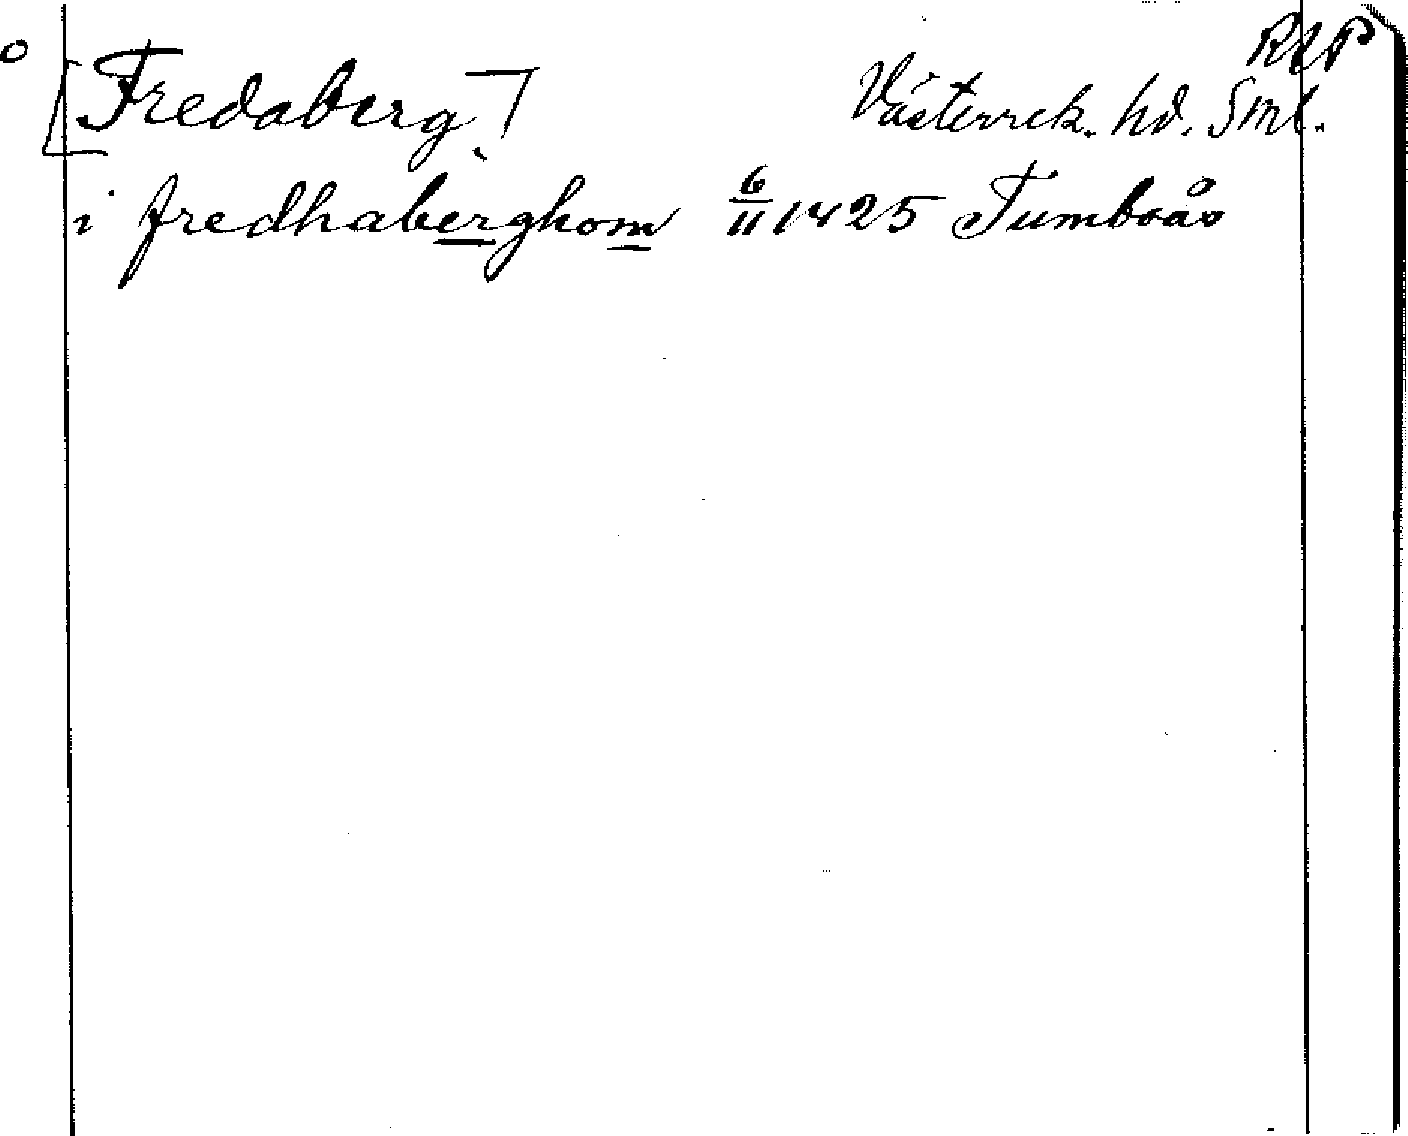 RAP
[Fredaberg] Västerrek. hd. Sml.
i fredhaberghom 6/11 1425 Tumboås